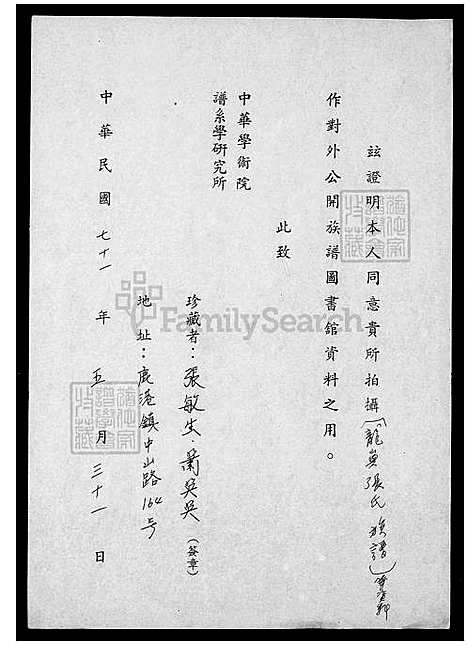 茲證明本人同意貴所拍攝(龍
張氏族譜)
作對外公開族譜圖書館資料之用。
此致
中華學術院
譜系學研究所
珍藏者：張敏生．蕭吳吳(簽章)
地址：鹿港鎮中山路164号
中華民國七十一年五月三十一日
FamilySearch